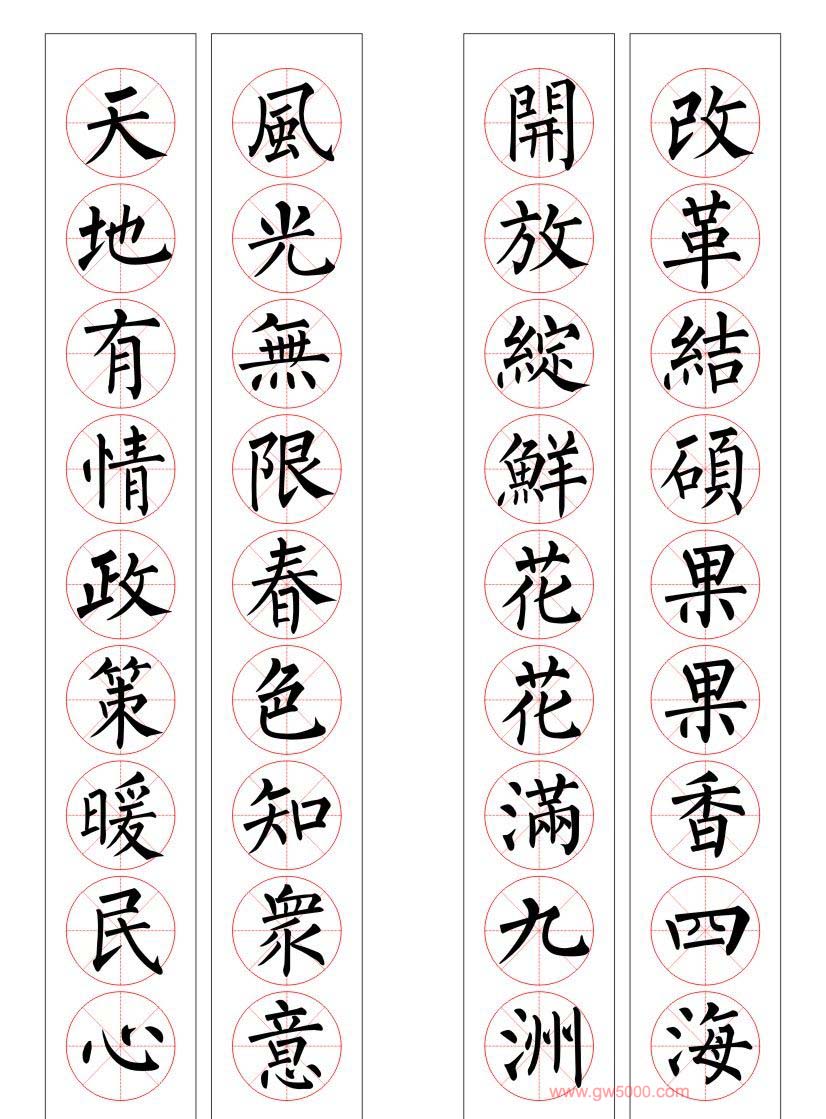 改革結碩果果香四海
開放綻鮮花花滿九洲
風光無限春色知衆意
天地有情政策暖民心
www.gw5000.com